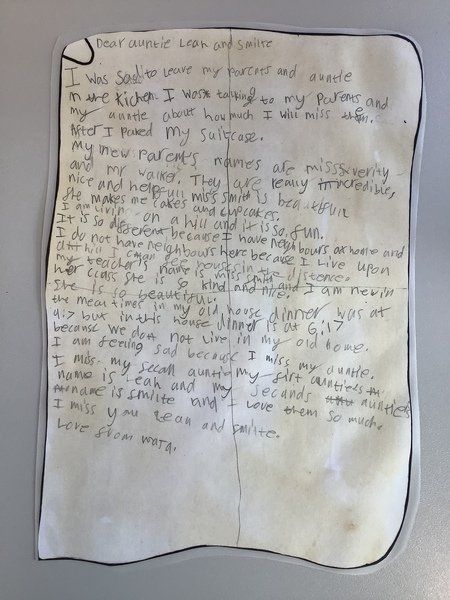 Dear auntie Leah and Smilte
I was sad to leave my parents and auntie
in the kichen I was talking to my parents and
my auntie about how much I will miss them.
After I paked my suitcase.
My new parents names are miss
and mr walker. They are really incredible,
nice and helpfull miss smith is beautifull
she makes me cakes and cupcakes.
I am livin on a hill and it is so fun.
It is so different because I have neighbours at home and
I do not have neighbours here because I live upon
a hill I can see houses in the distence.
my teachers name is miss and I am nevin
her class she is so kind and nice.
she is so beautiful.
the meal times in my old house dinner was at
4:7 but in this house dinner is at 6:17
becausc we do not live in my old home.
I am feeling sad because I miss my auntie.
I miss my secan auntie my first aunties
name is Leah and my secands aunties
name is smilte and I love them so much.
I miss you Lean and smilte.
Love from